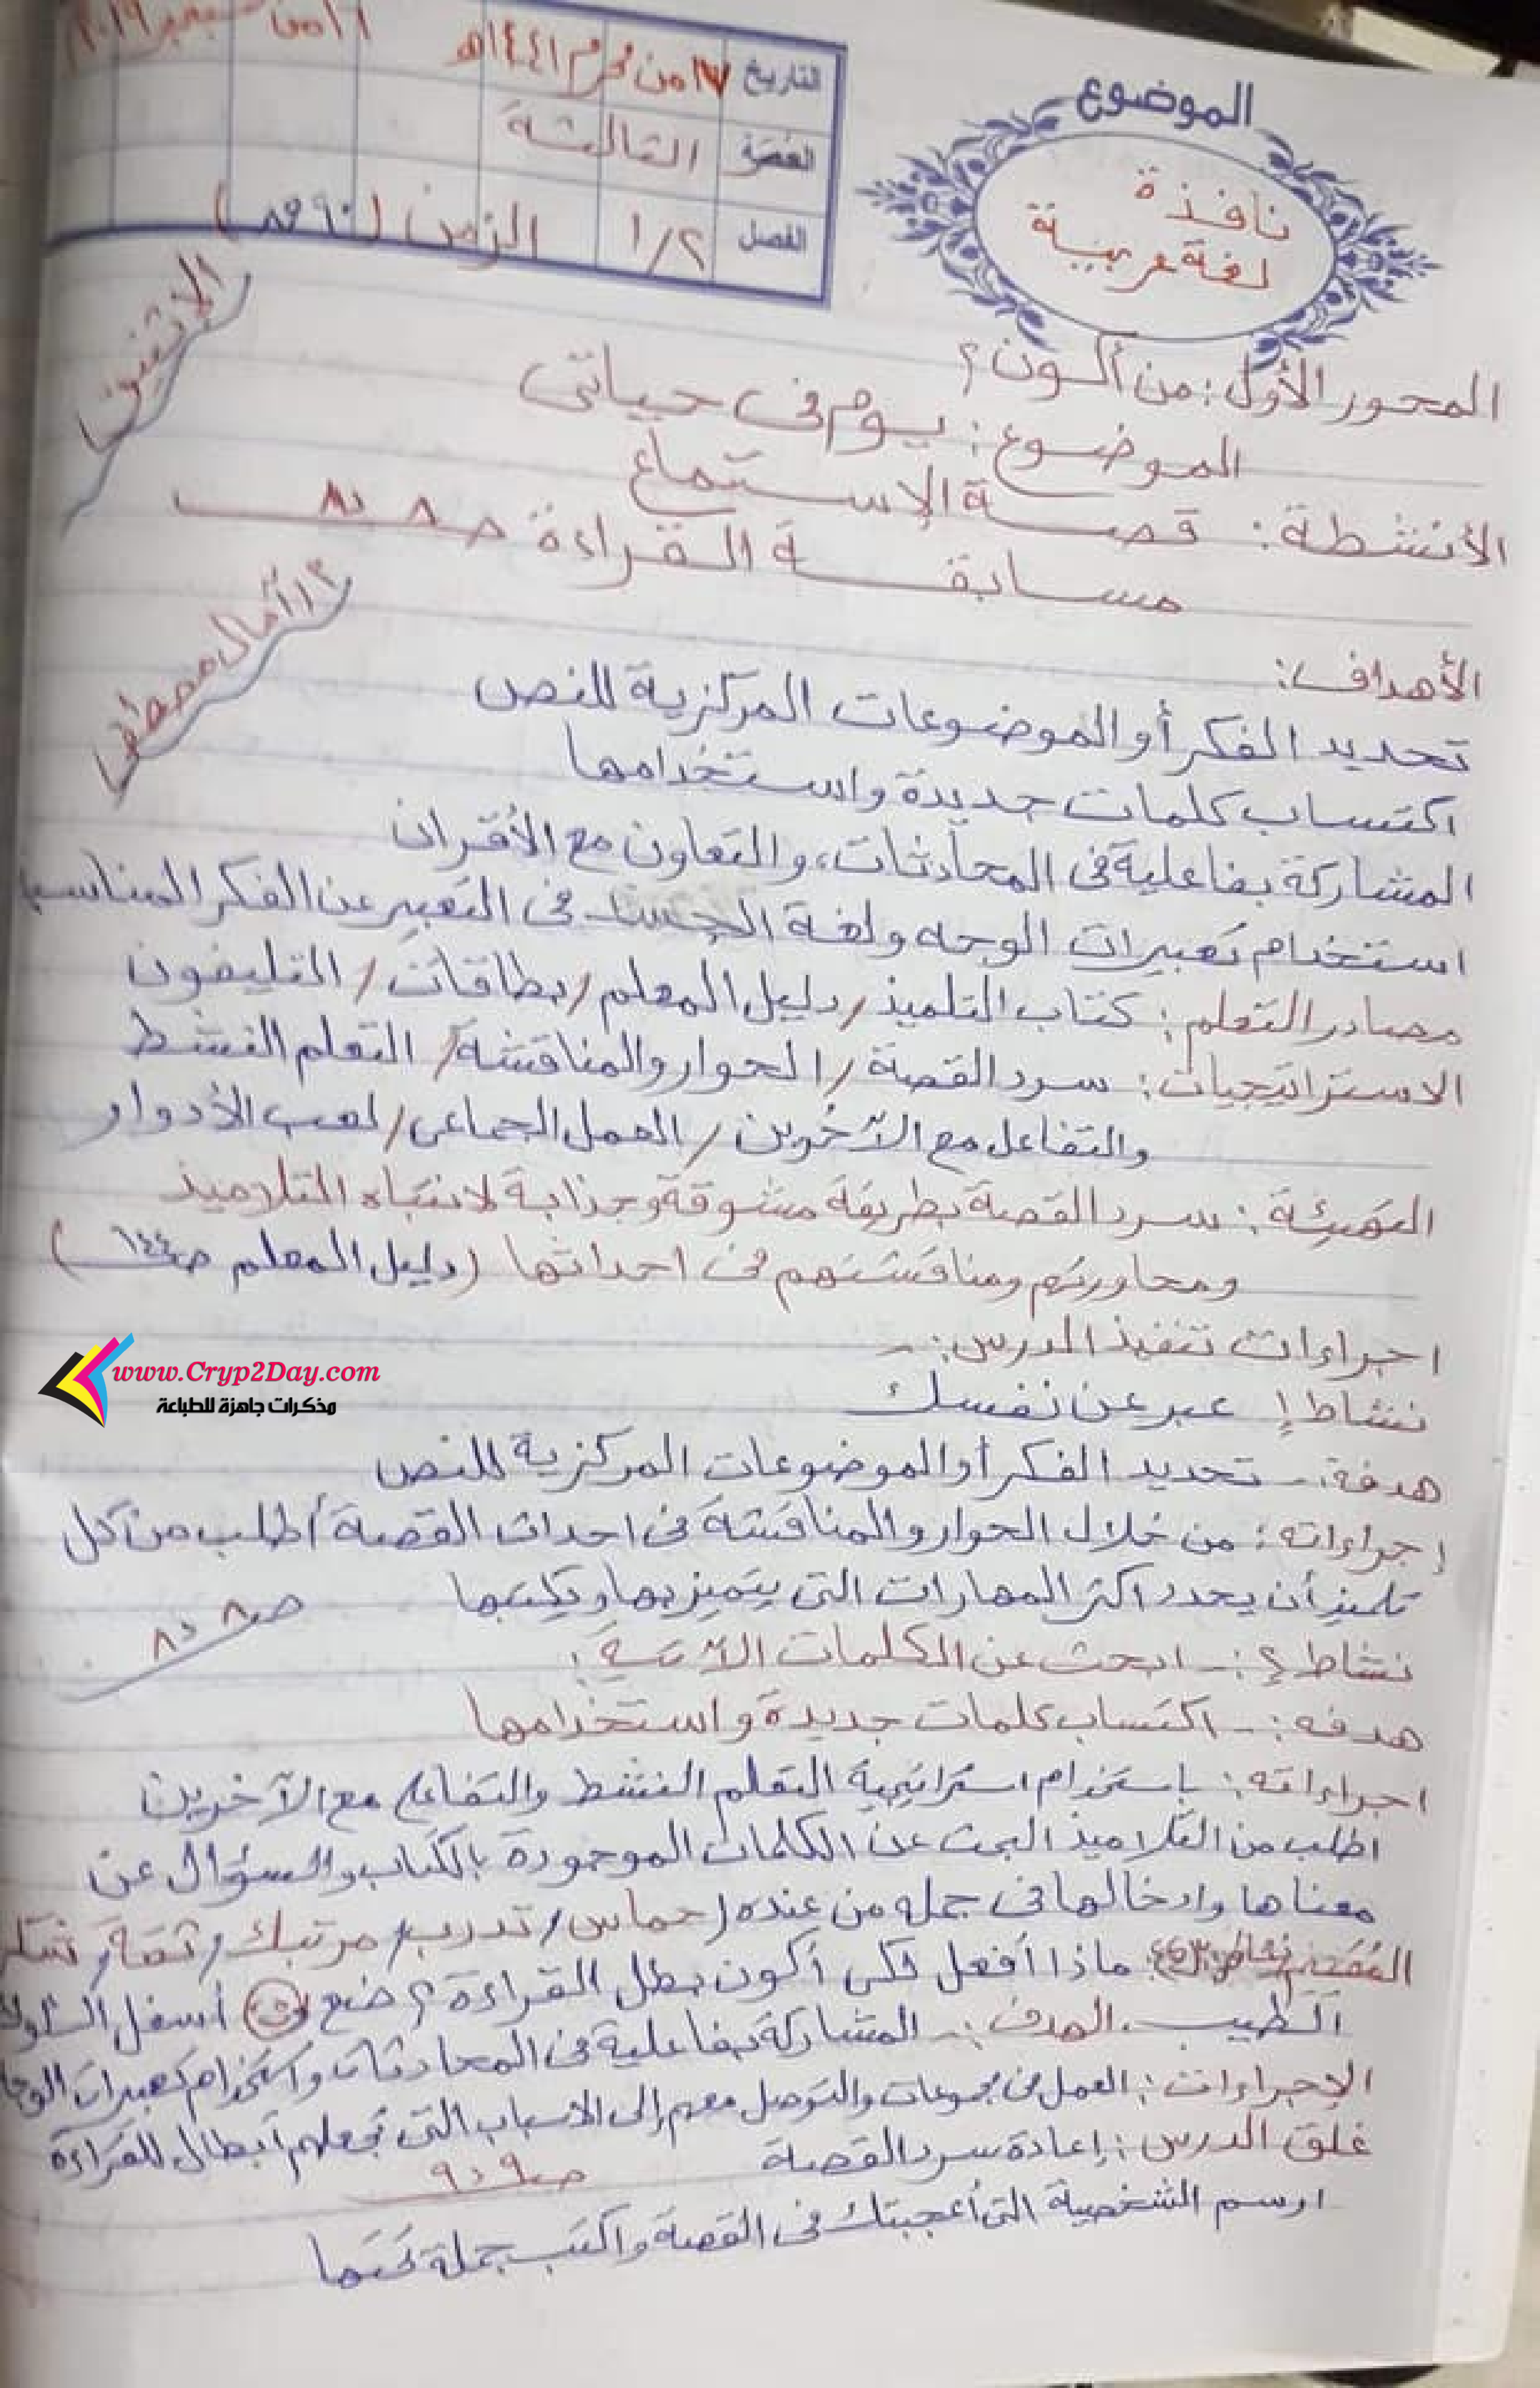 الموضوع
نافذة
لغة عربية
التاريخ ١٧ من محرم ١٤٤١هـ ١٦ من سبتمبر ٢٠١٩
الحصة الثالثة
الفصل ١/٢ الزمن (٩٠ ق)
الإثنين
المحور الأول: من أكون؟
الموضوع: يوم فى حياتى
الأنشطة: قصة الإستماع
مسابقة القراءة صـ ٨
أ/ آمال مصطفى
الأهداف:
تحديد الفكر أو الموضوعات المركزية للنص
اكتساب كلمات جديدة واستخدامها
المشاركة بفاعلية فى المحادثات، والتعاون مع الأقران
استخدام تعبيرات الوجه ولغة الجسد فى التعبير عن الفكر المناسبة
مصادر التعلم: كتاب التلميذ/ دليل المعلم/ بطاقات/ التليفون
الاستراتيجيات: سرد القصة/ الحوار والمناقشة/ التعلم النشط
والتفاعل مع الآخرين/ العمل الجماعى/ لعب الأدوار
التهيئة: سرد القصة بطريقة مشوقة وجذابة لانتباه التلاميذ
ومحاورتهم ومناقشتهم فى احداثها (دليل المعلم صـ١٤٤)
www.Cryp2Day.com
مذكرات جاهزة للطباعة
اجراءات تنفيذ الدرس:-
نشاط ١ عبر عن نفسك
هدفه:- تحديد الفكر أو الموضوعات المركزية للنص
إجراءاته: من خلال الحوار والمناقشة فى احداث القصة أطلب من كل
تلميذ أن يحدد اكثر المهارات التى يتميز بها ويكتبها
صـ ٨
نشاط ٢:- ابحث عن الكلمات الآتية:
هدفه:- اكتساب كلمات جديدة واستخدامها
اجراءاته: باستخدام استراتيجية التعلم النشط والتفاعل مع الآخرين
اطلب من التلاميذ البحث عن الكلمات الموجودة بالكتاب والسؤال عن
معناها وادخالها فى جملة من عنده (حماس/ تدرب/ مرتبك/ ثقة/
ماذا أفعل لكى أكون بطل القراءة؟ ضع أسفل السلوك
الطيب. الهدف:- المشاركة بفاعلية فى المحادثات واستخدام تعبيرات الوجه
الإجراءات: العمل فى مجموعات والتوصل معهم إلى الاسباب التى تجعلهم أبطال للقراءة
غلق الدرس: إعادة سرد القصة صـ ٩
ارسم الشخصية التى أعجبتك فى القصة واكتب جملة تحتها